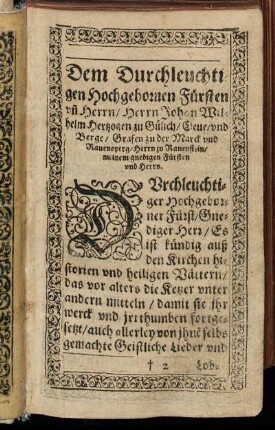 Dem Durchleuchti
gen Hochgebornen Fürsten
vñ Herrn/ Herrn Johan Wil-
helm Hertzogen zu Gülich/ Cleue/ vnd
Berge/ Grafen zu der Marck vnd
Rauenßperg/ Herrn zu Rauenstein/
meinem gnedigen Fürsten
vnd Herrn.
DVrchleuchti-
ger Hochgebor-
ner Fürst/ Gne-
diger Herr/ Es
ist kündig auß
den Kirchen hi-
storien vnd heiligen Vättern/
das vor alters die Ketzer vnter
andern mitteln/ damit sie jhr
werck vnd jrrthumben fortge-
setzt/ auch allerley von jhnē selbs
gemachte Geistliche Lieder vnd
† 2 Lob-